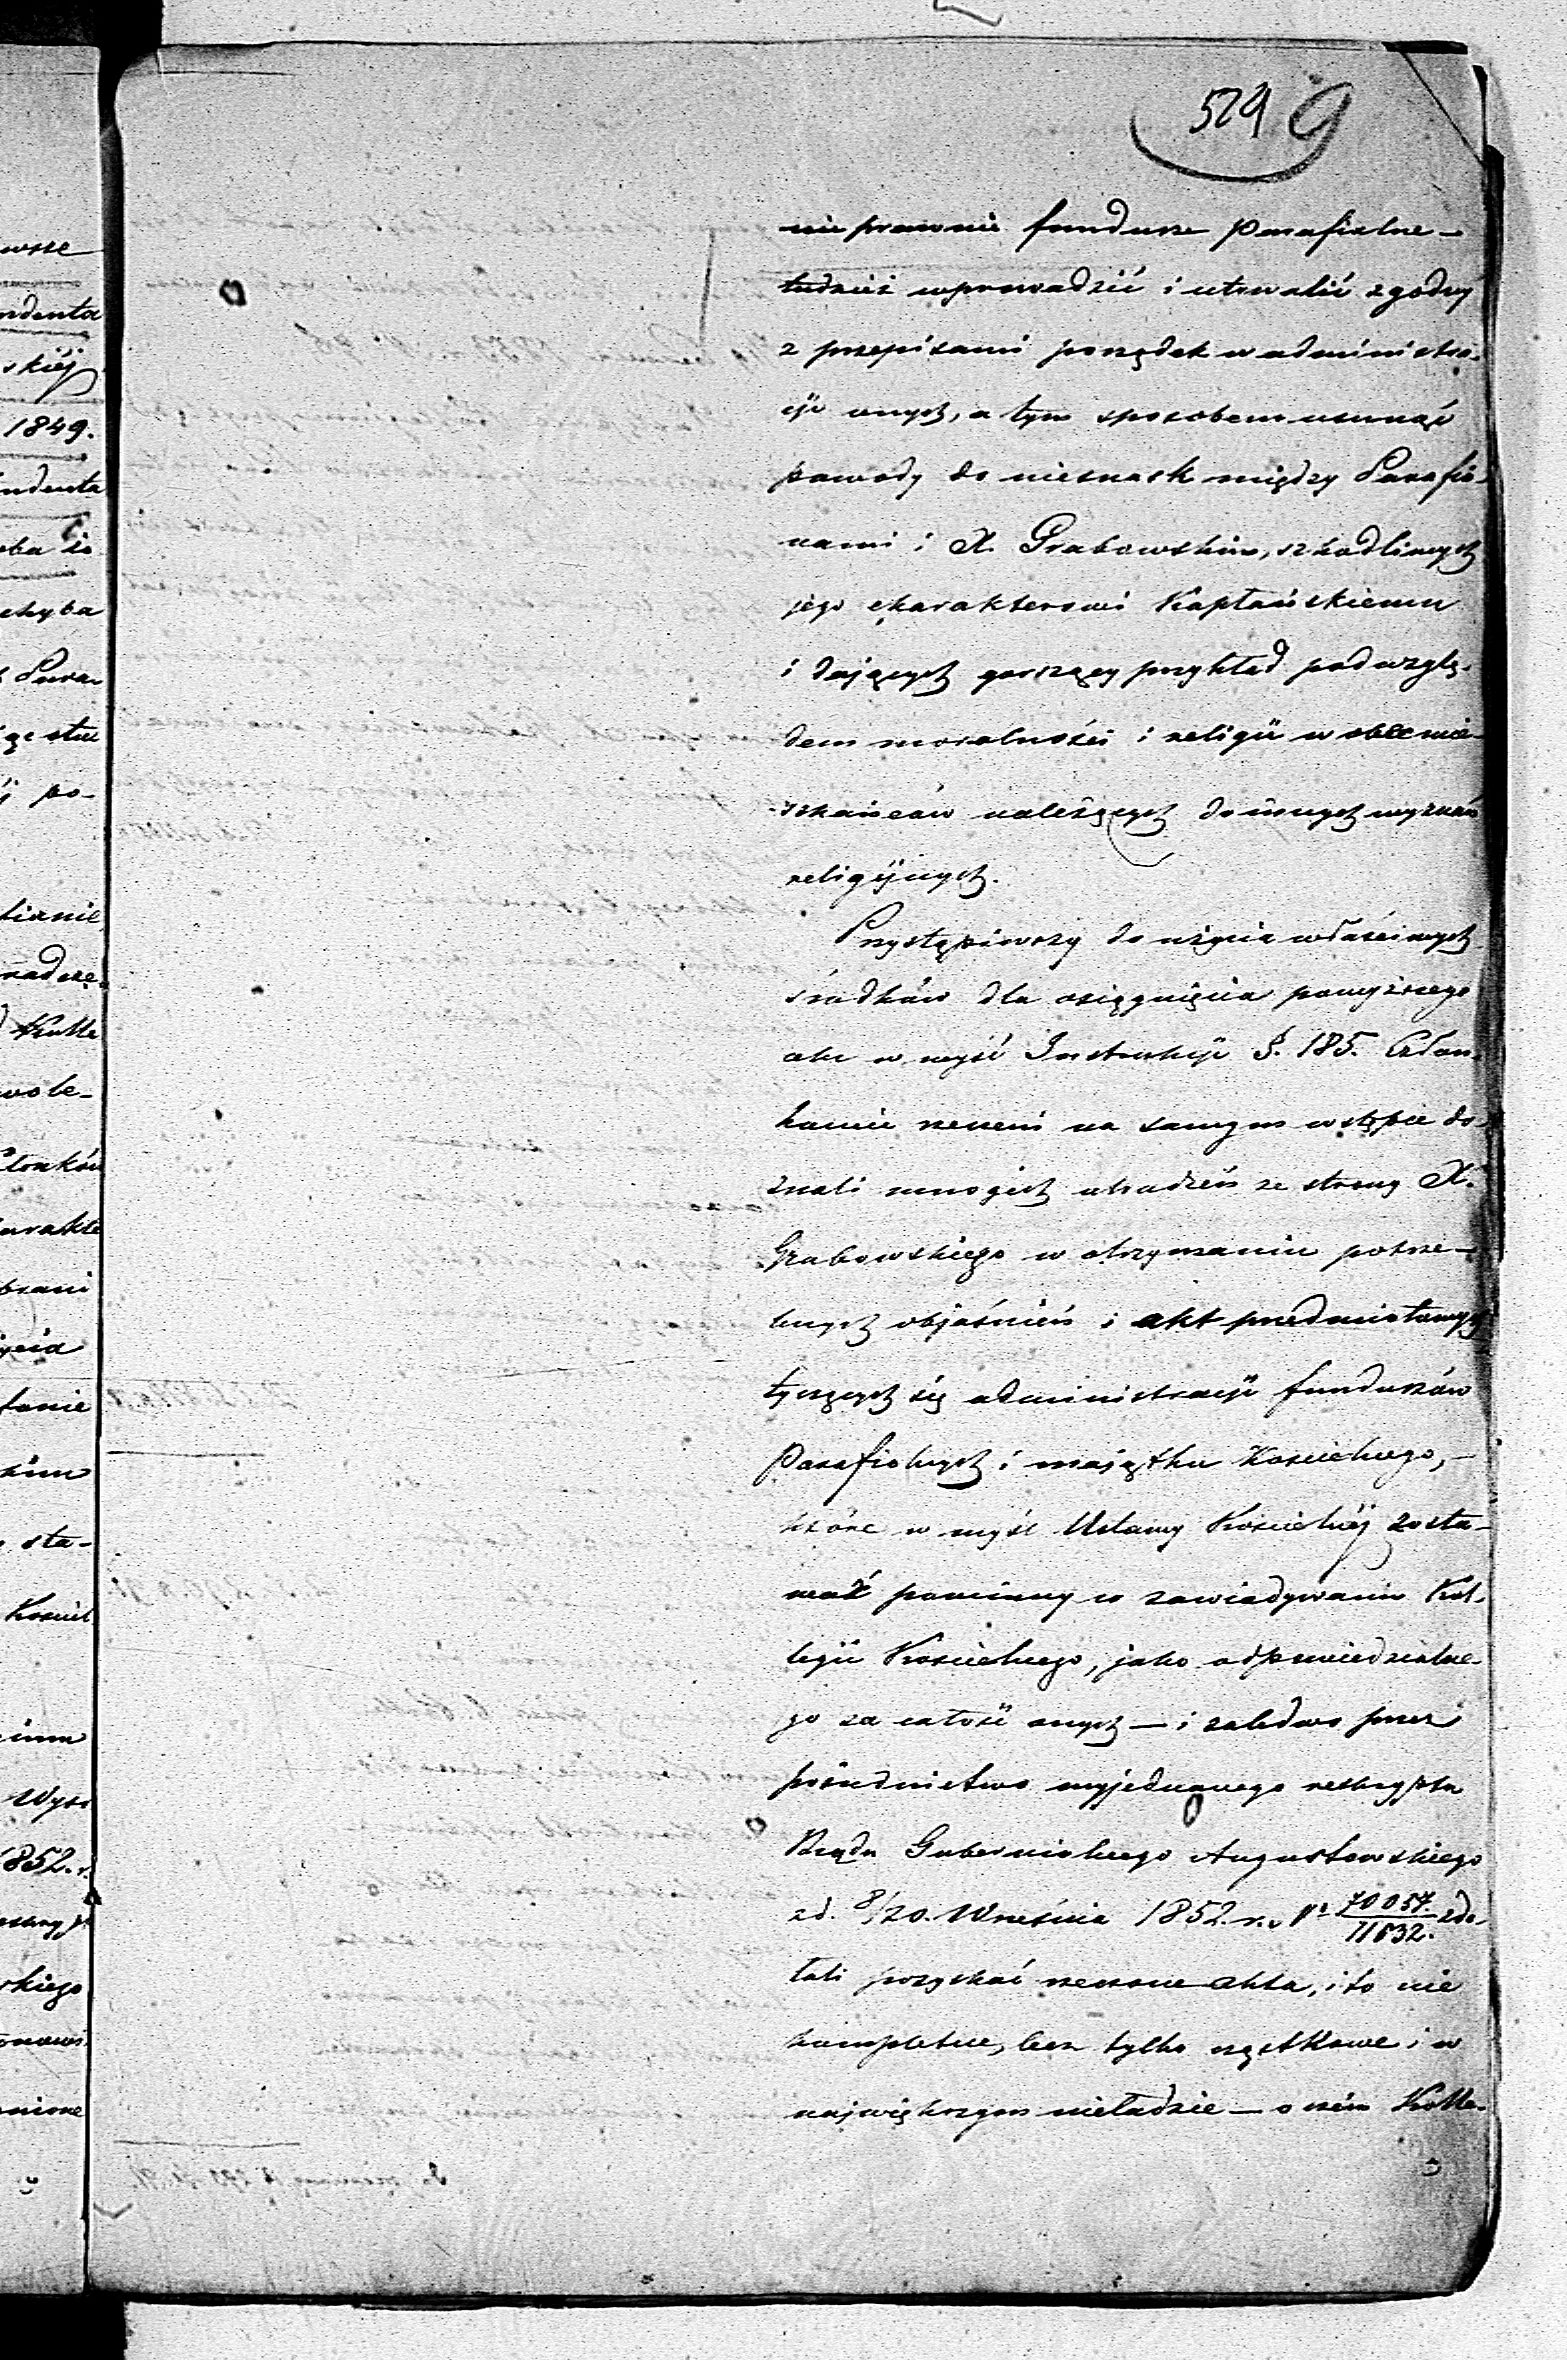 529 9
nieprawnie fundusze Parafialne —
tudzież wprowadzić i utrwalić zgodny
z przepisami porządek w administra-
cyi onych, a tym sposobem usunąć
powody do niesnask między Parafia-
nami i X. Grabowskim, szkodliwych
jego charakterowi Kapłańskiemu
i dających gorszący przykład pod wzglę-
dem moralności i religii w obec mie-
szkańców należących do innych wyznań
religijnych.
Przystąpiwszy do użycia właściwych
środków dla osiągnięcia powyższego
celu w myśl Instrukcyi §. 185. Człon-
kowie rzeczeni na samym wstępie do-
znali mnogich utrudzeń ze strony X.
Grabowskiego w otrzymaniu potrze-
bnych objaśnień i akt przedmiotowych
tyczących się administracyi funduszów
Parafialnych i majątku Kościelnego, —
które w myśl Ustawy Kościelnéj zosta-
wać powinny w zawiadywaniu Kol-
legii Kościelnego, jako odpowiedzialne-
go za całość onych — i zaledwo przez
pośrednictwo wyjednanego reskryptu
Rządu Gubernialnego Augustowskiego
z d. 8/20. Września 1852. r. Nº 70057./11632. zdo-
łali pozyskać rzeczone akta, i to nie
kompletne, lecz tylko cząstkowe i w
największym nieładzie — o czém Kolle-